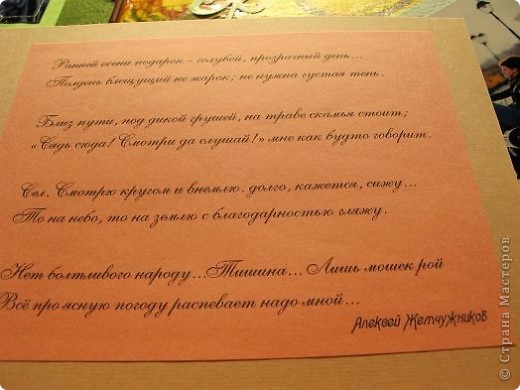 Ранней осени подарок – голубой, прозрачный день...
Полдень блещущий не жарок; не нужна густая тень.
Близ пути, под дикой грушей, на траве скамья стоит;
«Сядь сюда! Смотри да слушай!» мне как будто говорит.
Сел. Смотрю кругом и внемлю. долго, кажется, сижу...
То на небо, то на землю с благодарностью гляжу.
Нет болтливого народу...Тишина... Лишь мошек рой
Всё про ясную погоду распевает надо мной...
Алексей Жемчужников
© Страна Мастеров